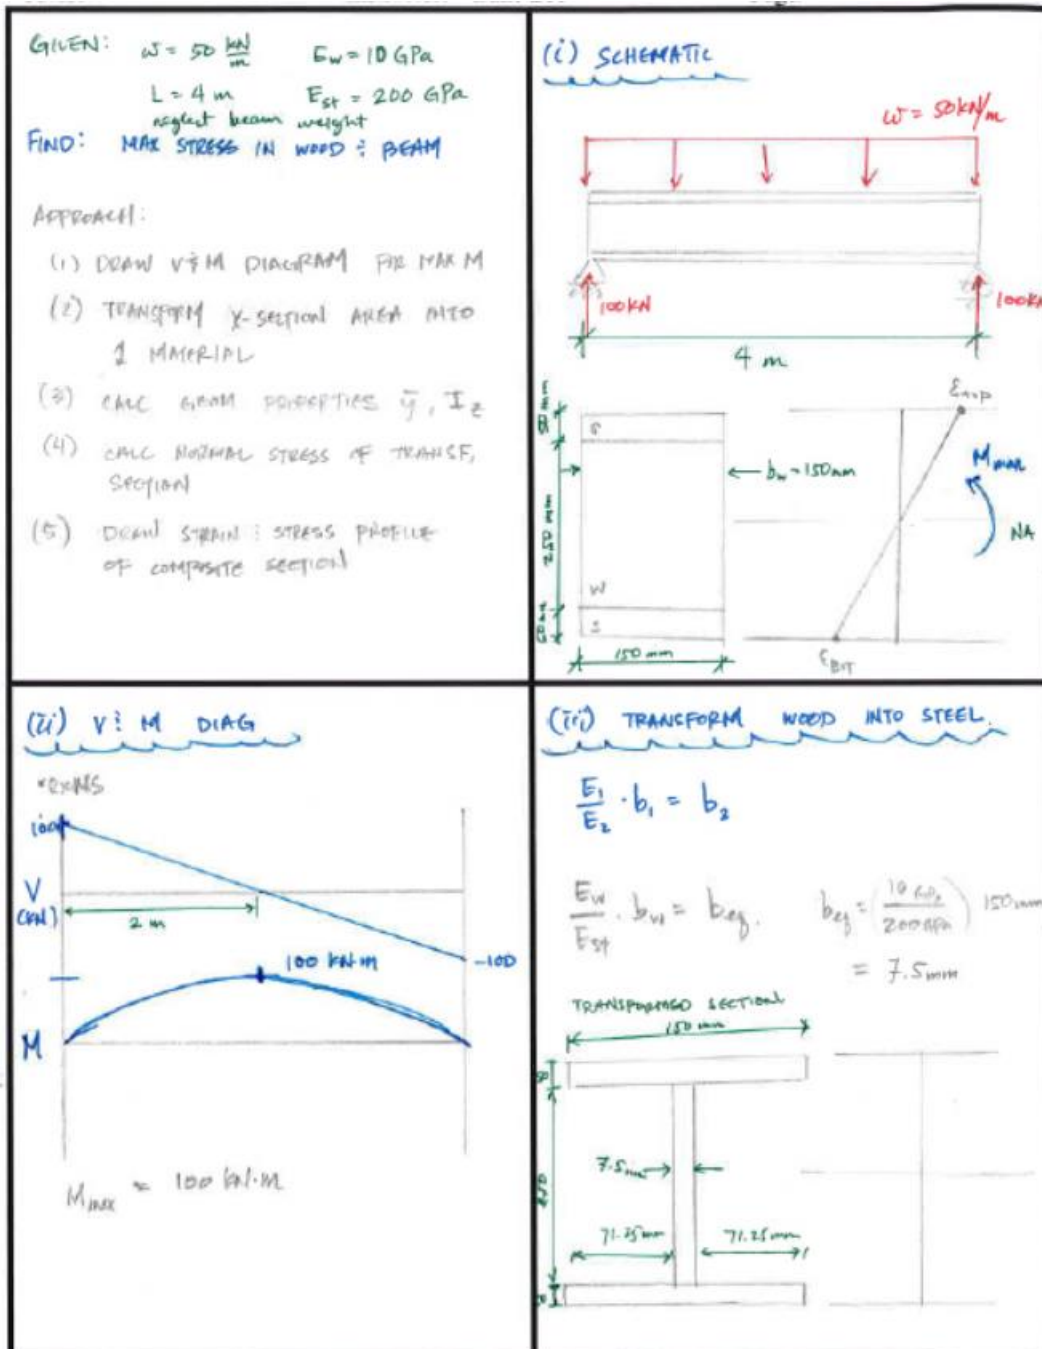 GIVEN: w = 50 kN/m E_w = 10 GPa
L = 4 m E_st = 200 GPa
neglect beam weight
FIND: MAX STRESS IN WOOD & BEAM
APPROACH:
(1) DRAW V & M DIAGRAM FOR MAX M
(2) TRANSFORM X-SECTION AREA INTO
1 MATERIAL
(3) CALC GEOM PROPERTIES ȳ, I_z
(4) CALC NORMAL STRESS OF TRANSF.
SECTION
(5) DRAW STRAIN & STRESS PROFILE
OF COMPOSITE SECTION
(i) SCHEMATIC
w = 50 kN/m
100 kN
100 kN
4 m
50 mm
S
b_w = 150 mm
250 mm
W
50 mm
S
150 mm
M_max
NA
ε_BOT
(ii) V & M DIAG
100
V
(kN)
2 m
-100
100 kN·m
M
M_max = 100 kN·m
(iii) TRANSFORM WOOD INTO STEEL.
E_1/E_2 · b_1 = b_2
E_w/E_st · b_w = b_eq. b_eq = (10 GPa/200 GPa) 150 mm
= 7.5 mm
TRANSFORMED SECTION
150 mm
250
7.5 mm
71.25 mm
71.25 mm